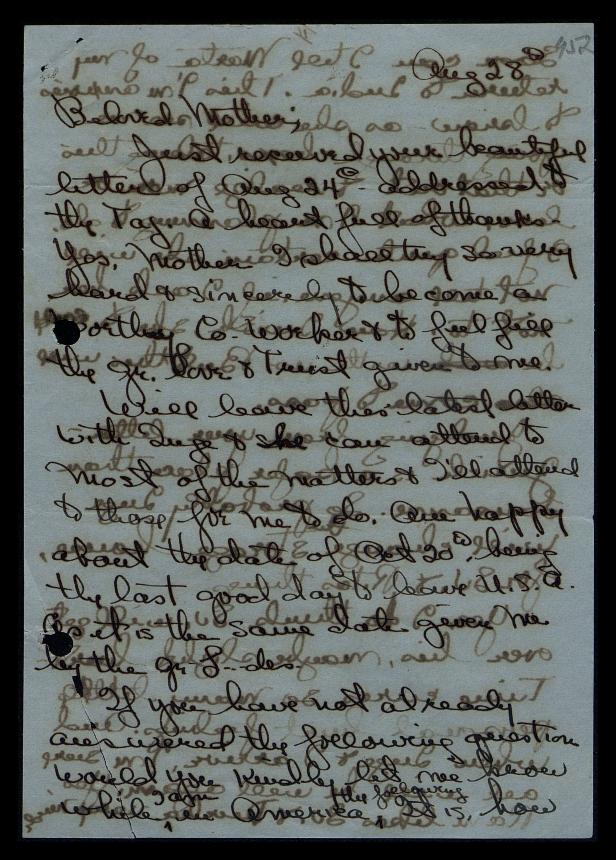 952
Aug 28th
Beloved Mother;
Just received your beautiful
letters of Aug 24th addressed to
the Tag. A heart full of thanks.
Yes, Mother I shall try so very
hard & sincerely to become a
worthy Co-Worker & to ful fill
the gr. love & Trust given to me.
Will leave this latest letter
with Inge & she can attend to
most of the matters & I'll attend
to those for me to do. Am happy
about the date of Oct 20th, being
the last good day to leave U.S.A.
As it is the same date given me
by the gr.
If you have not already
answered the following question
would you kindly let me know
while I am in America, the following It is, how